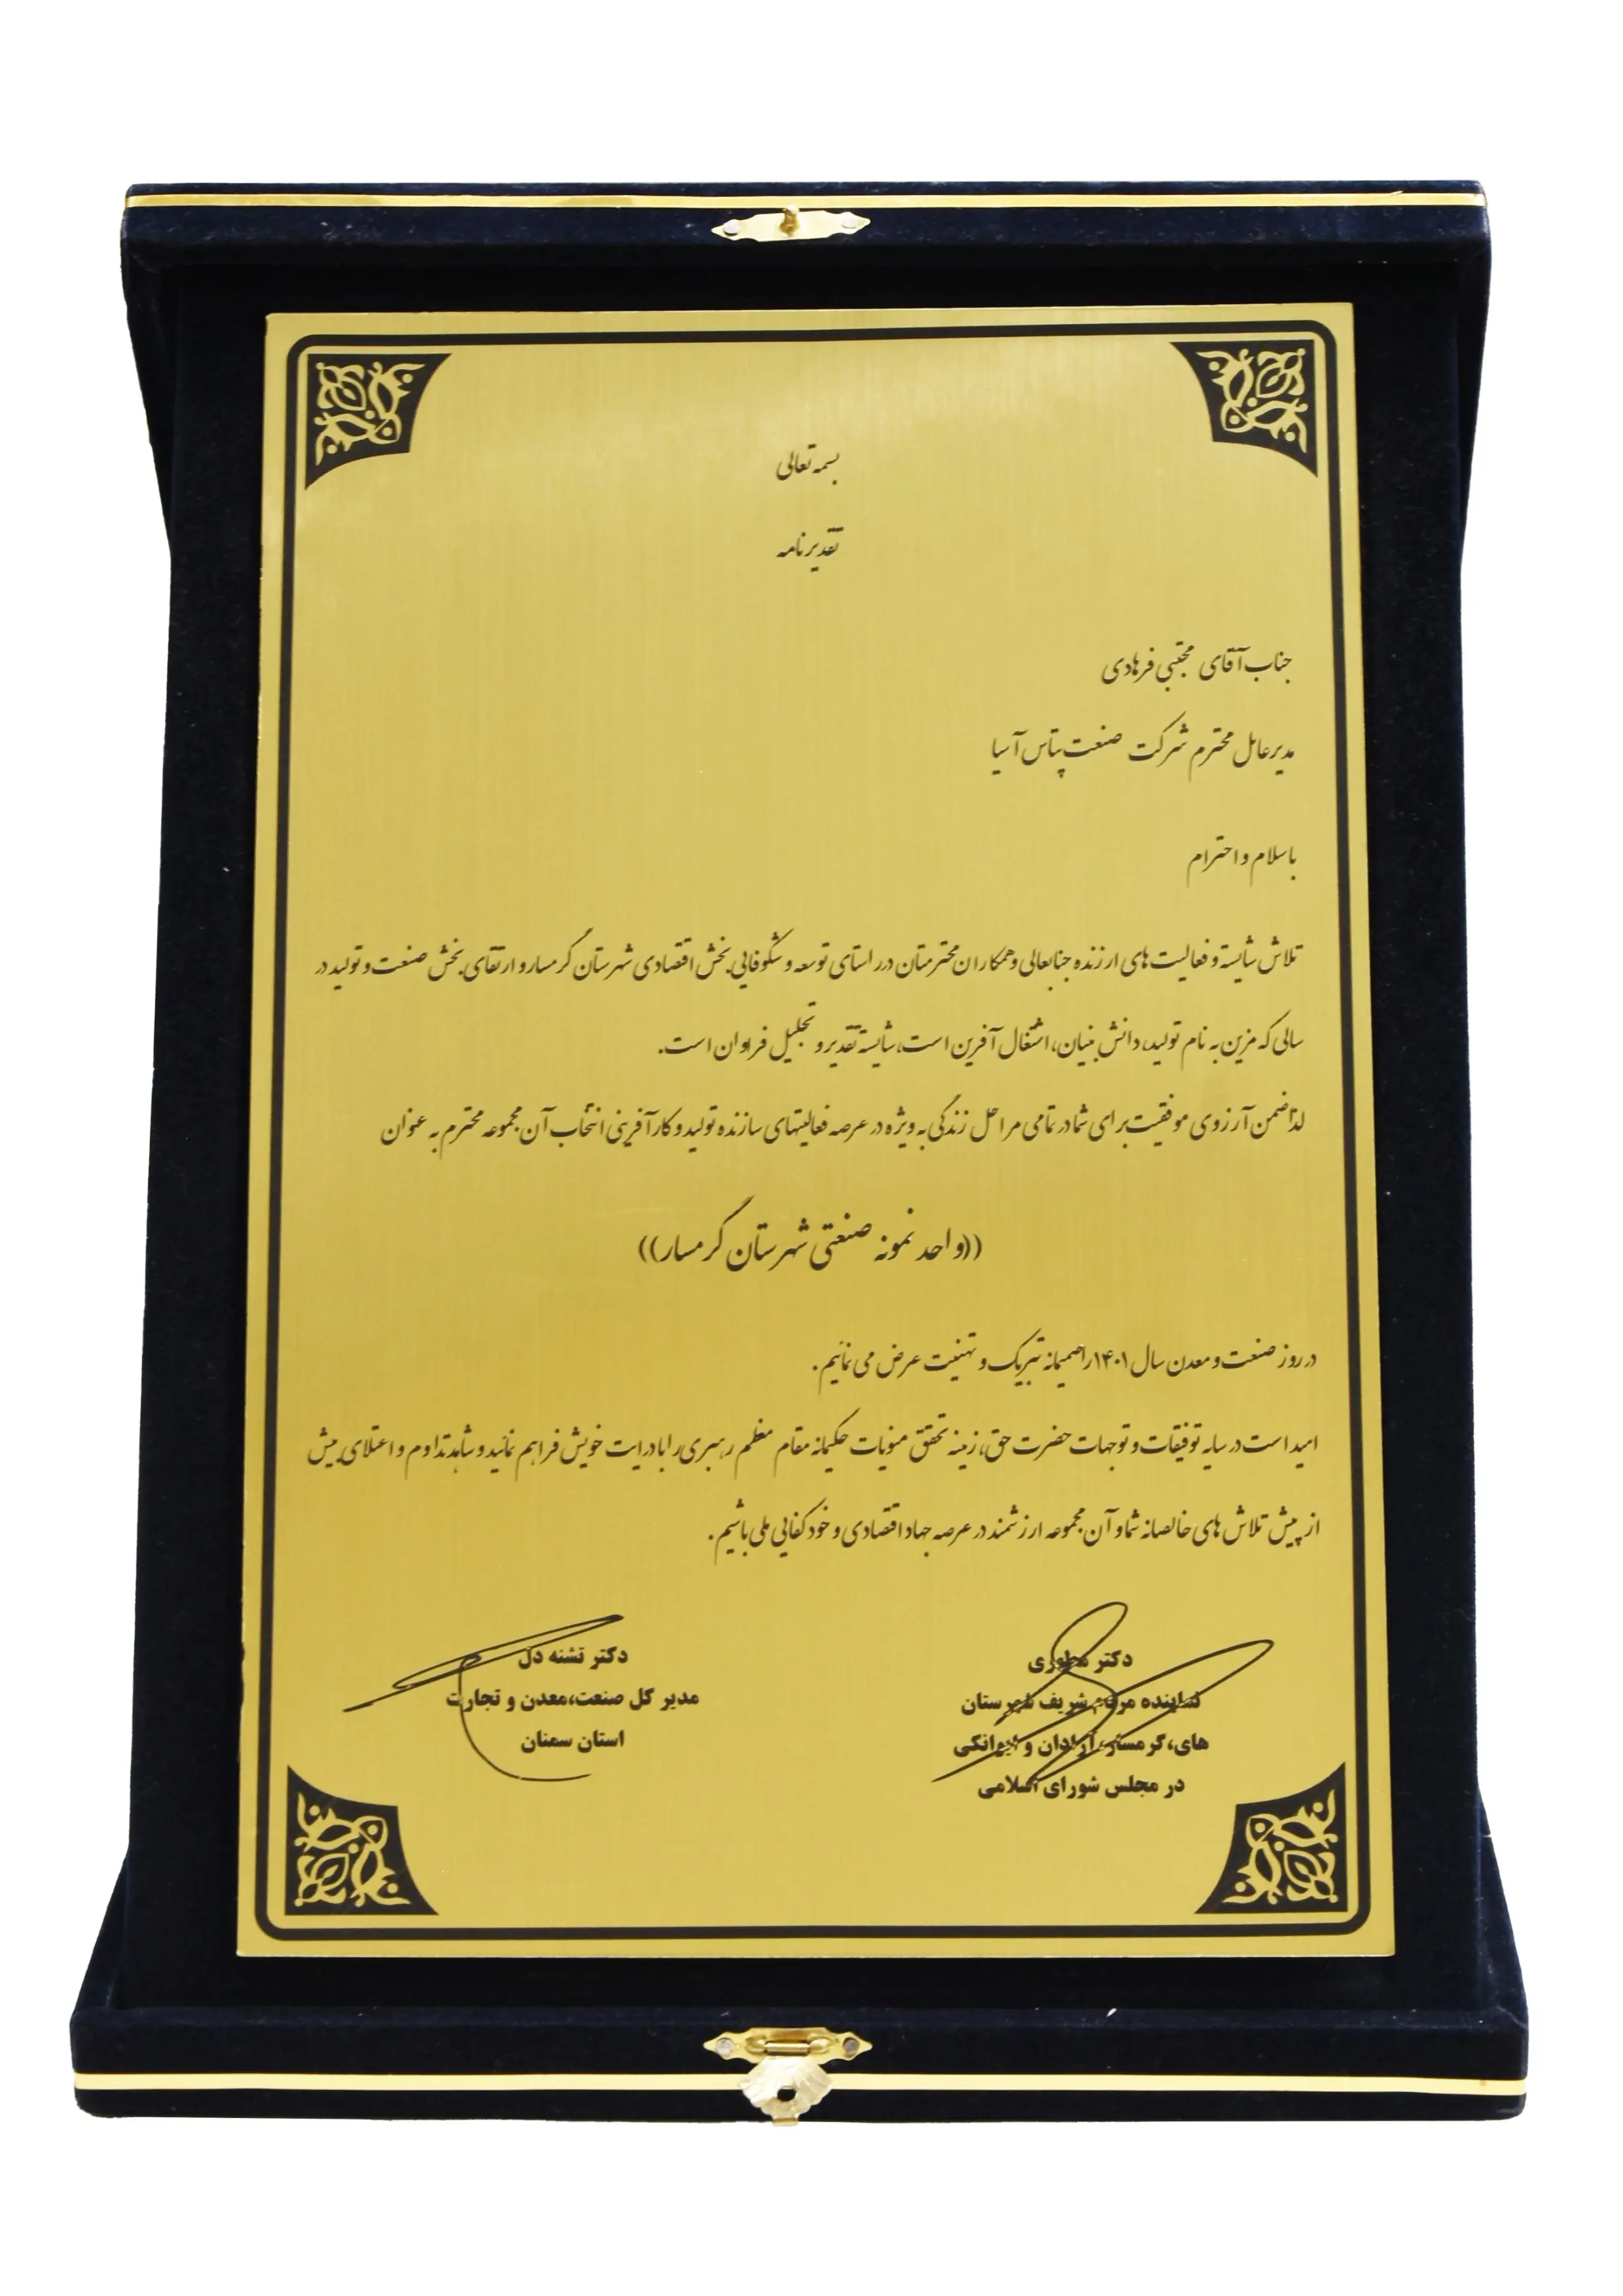 بسمه تعالی
تقدیرنامه
جناب آقای مجتبی فرهادی
مدیرعامل محترم شرکت صنعت پتاس آسیا
با سلام و احترام
تلاش شایسته و فعالیت های ارزنده جنابعالی و همکاران محترمتان در راستای توسعه و شکوفایی بخش اقتصادی شهرستان گرمسار و ارتقای بخش صنعت و تولید در
سالی که مزین به نام تولید، دانش بنیان، اشتغال آفرین است، شایسته تقدیر و تجلیل فراوان است.
لذا ضمن آرزوی موفقیت برای شما در تمامی مراحل زندگی به ویژه در عرصه فعالیتهای سازنده تولید و کارآفرینی انتخاب آن مجموعه محترم به عنوان
((واحد نمونه صنعتی شهرستان گرمسار))
در روز صنعت و معدن سال ۱۴۰۱ را صمیمانه تبریک و تهنیت عرض می نمائیم.
امید است در سایه توفیقات و توجهات حضرت حق، زمینه تحقق منویات حکیمانه مقام معظم رهبری را با درایت خویش فراهم نمائید و شاهد تداوم و اعتلای بیش
از پیش تلاش های خالصانه شما و آن مجموعه ارزشمند در عرصه جهاد اقتصادی و خودکفایی ملی باشیم.
دکتر مطوری
نماینده مردم شریف شهرستان
های، گرمسار، آرادان و ایوانکی
در مجلس شورای اسلامی
دکتر تشنه دل
مدیر کل صنعت،معدن و تجارت
استان سمنان